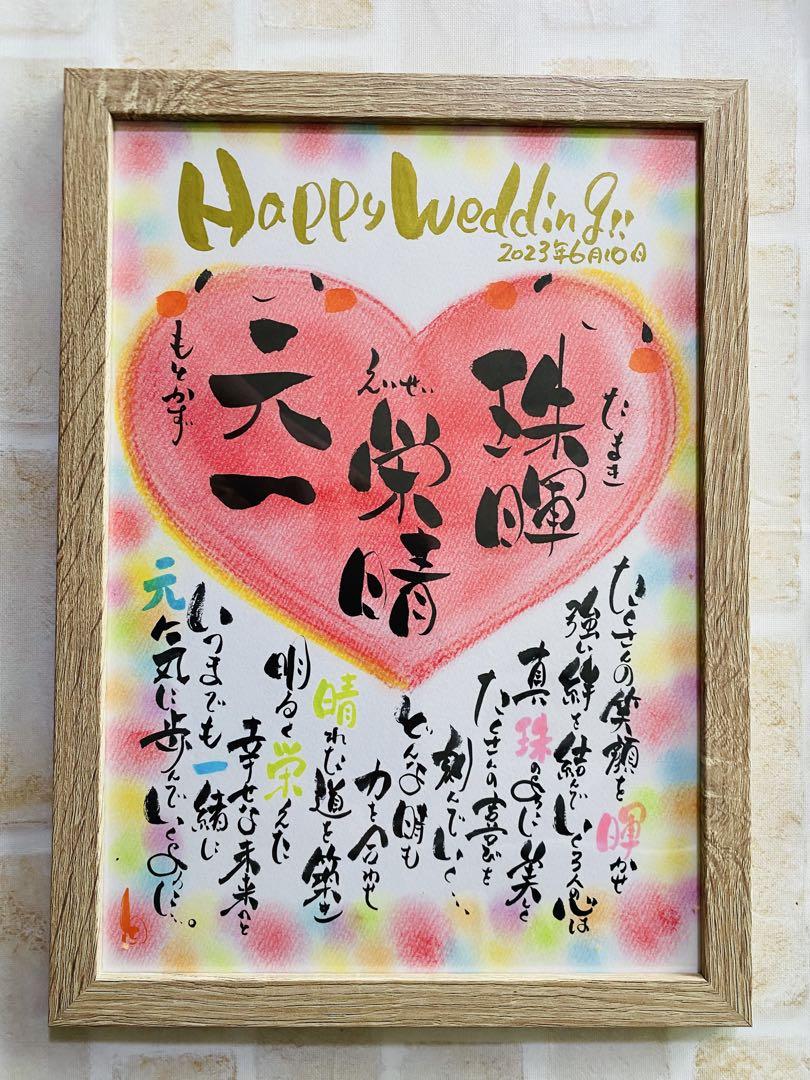 Happy Wedding!!
2023年6月10日
たまき
珠暉
えいせい
栄晴
もとかず
元一
たくさんの笑顔を暉かせ
強い絆を結んでいく二人の心は
真珠のように美しく
たくさんの喜びを
刻んでいく…
どんな時も
力を合わせ
晴れた道を築き
明るく栄えた
幸せな未来のと
いつまでも一緒に
元気に歩んでいくように…。